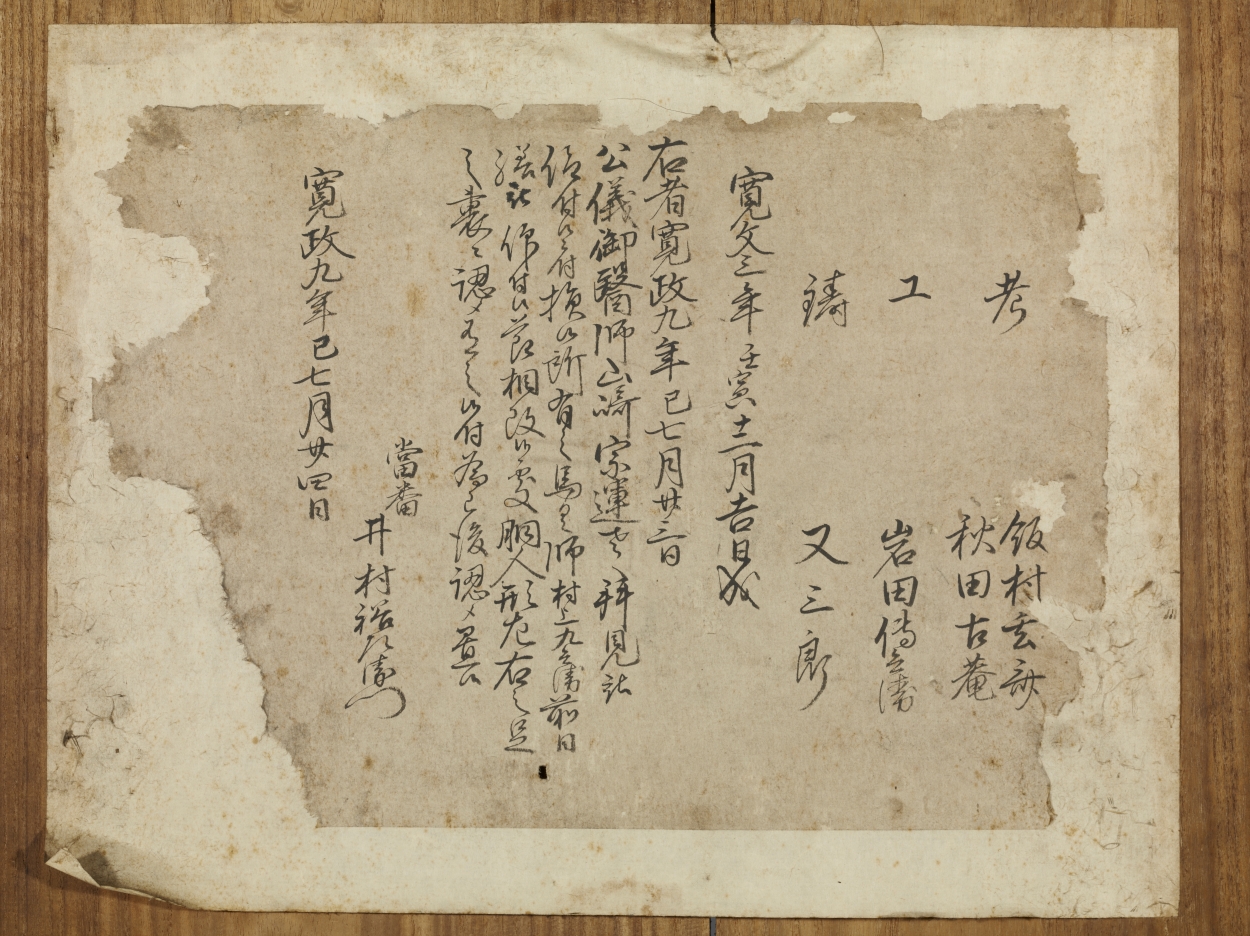 考
飯村玄齋
秋田古菴
工 岩田傳兵衛
鋳 又三郎
寛文三年壬寅十二月吉日成
右者寛政九年巳七月廿三日
公儀御醫師山崎宗運老拝見就
仰付候付損候所有之馬具師村上九兵衛前日
繕就仰付候節相改候處胴人形左右之足
之裏ニ認メ有之候付為已後認メ置候
當番
井村 衛門
寛政九年巳七月廿四日